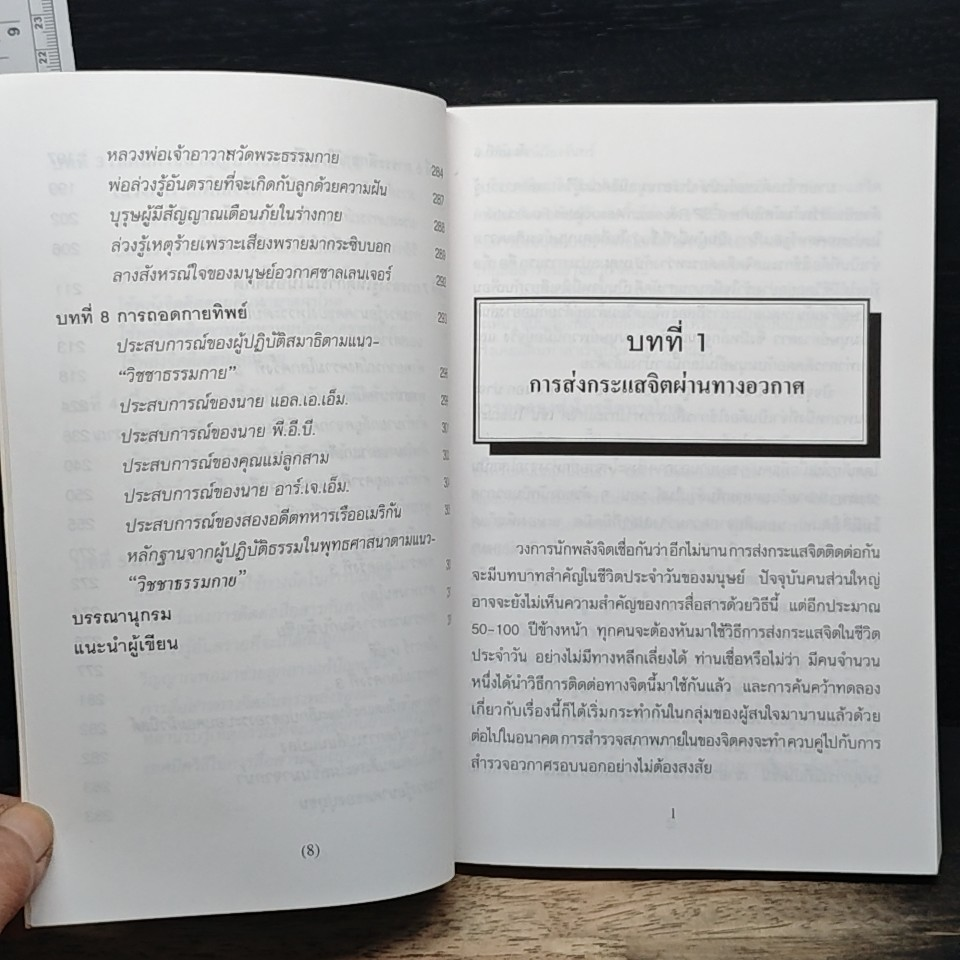 หลวงพ่อเจ้าอาวาสวัดพระธรรมกาย 284
พ่อล่วงรู้อันตรายที่จะเกิดกับลูกด้วยความฝัน 287
บุรุษผู้มีสัญญาณเตือนภัยในร่างกาย 288
ล่วงรู้เหตุร้ายเพราะเสียงพรายมากระซิบบอก 289
ลางสังหรณ์ใจของมนุษย์อวกาศชาลเลนเจอร์ 292
บทที่ 8 การถอดกายทิพย์ 293
ประสบการณ์ของผู้ปฏิบัติสมาธิตามแนว-
“วิชชาธรรมกาย”
ประสบการณ์ของนาย แอล.เอ.เอ็ม.
ประสบการณ์ของนาย พี.อี.บี.
ประสบการณ์ของคุณแม่ลูกสาม
ประสบการณ์ของนาย อาร์.เจ.เอ็ม.
ประสบการณ์ของสองอดีตทหารเรืออเมริกัน
หลักฐานจากผู้ปฏิบัติธรรมในพุทธศาสนาตามแนว-
“วิชชาธรรมกาย”
บรรณานุกรม
แนะนำผู้เขียน
(8)
บทที่ 1
การส่งกระแสจิตผ่านทางอวกาศ
วงการนักพลังจิตเชื่อกันว่าอีกไม่นานการส่งกระแสจิตติดต่อกัน
จะมีบทบาทสำคัญในชีวิตประจำวันของมนุษย์ ปัจจุบันคนส่วนใหญ่
อาจจะยังไม่เห็นความสำคัญของการสื่อสารด้วยวิธีนี้ แต่อีกประมาณ
50-100 ปีข้างหน้า ทุกคนจะต้องหันมาใช้วิธีการส่งกระแสจิตในชีวิต
ประจำวัน อย่างไม่มีทางหลีกเลี่ยงได้ ท่านเชื่อหรือไม่ว่า มีคนจำนวน
หนึ่งได้นำวิธีการติดต่อทางจิตนี้มาใช้กันแล้ว และการค้นคว้าทดลอง
เกี่ยวกับเรื่องนี้ก็ได้เริ่มกระทำกันในกลุ่มของผู้สนใจมานานแล้วด้วย
ต่อไปในอนาคตการสำรวจสภาพภายในของจิตคงจะทำควบคู่ไปกับการ
สำรวจอวกาศรอบนอกอย่างไม่ต้องสงสัย
1